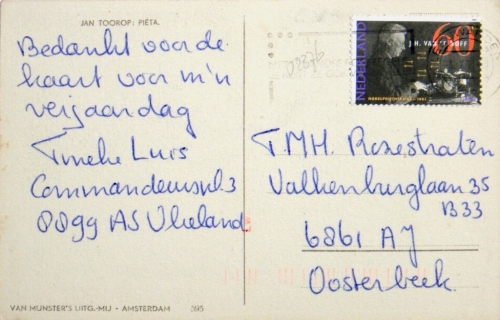 JAN TOOROP: PIËTA.
Bedankt voor de
kaart voor m'n
verjaardag
Tineke Luis
Commandeurspl. 3
8899 AS Vlieland
NEDERLAND
60
J.H. VAN 'T HOFF
T.M.H. Rozestraten
Valkenburglaan 35
B33
6861 AJ
Oosterbeek.
VAN MUNSTER'S UITG.-MIJ - AMSTERDAM 395